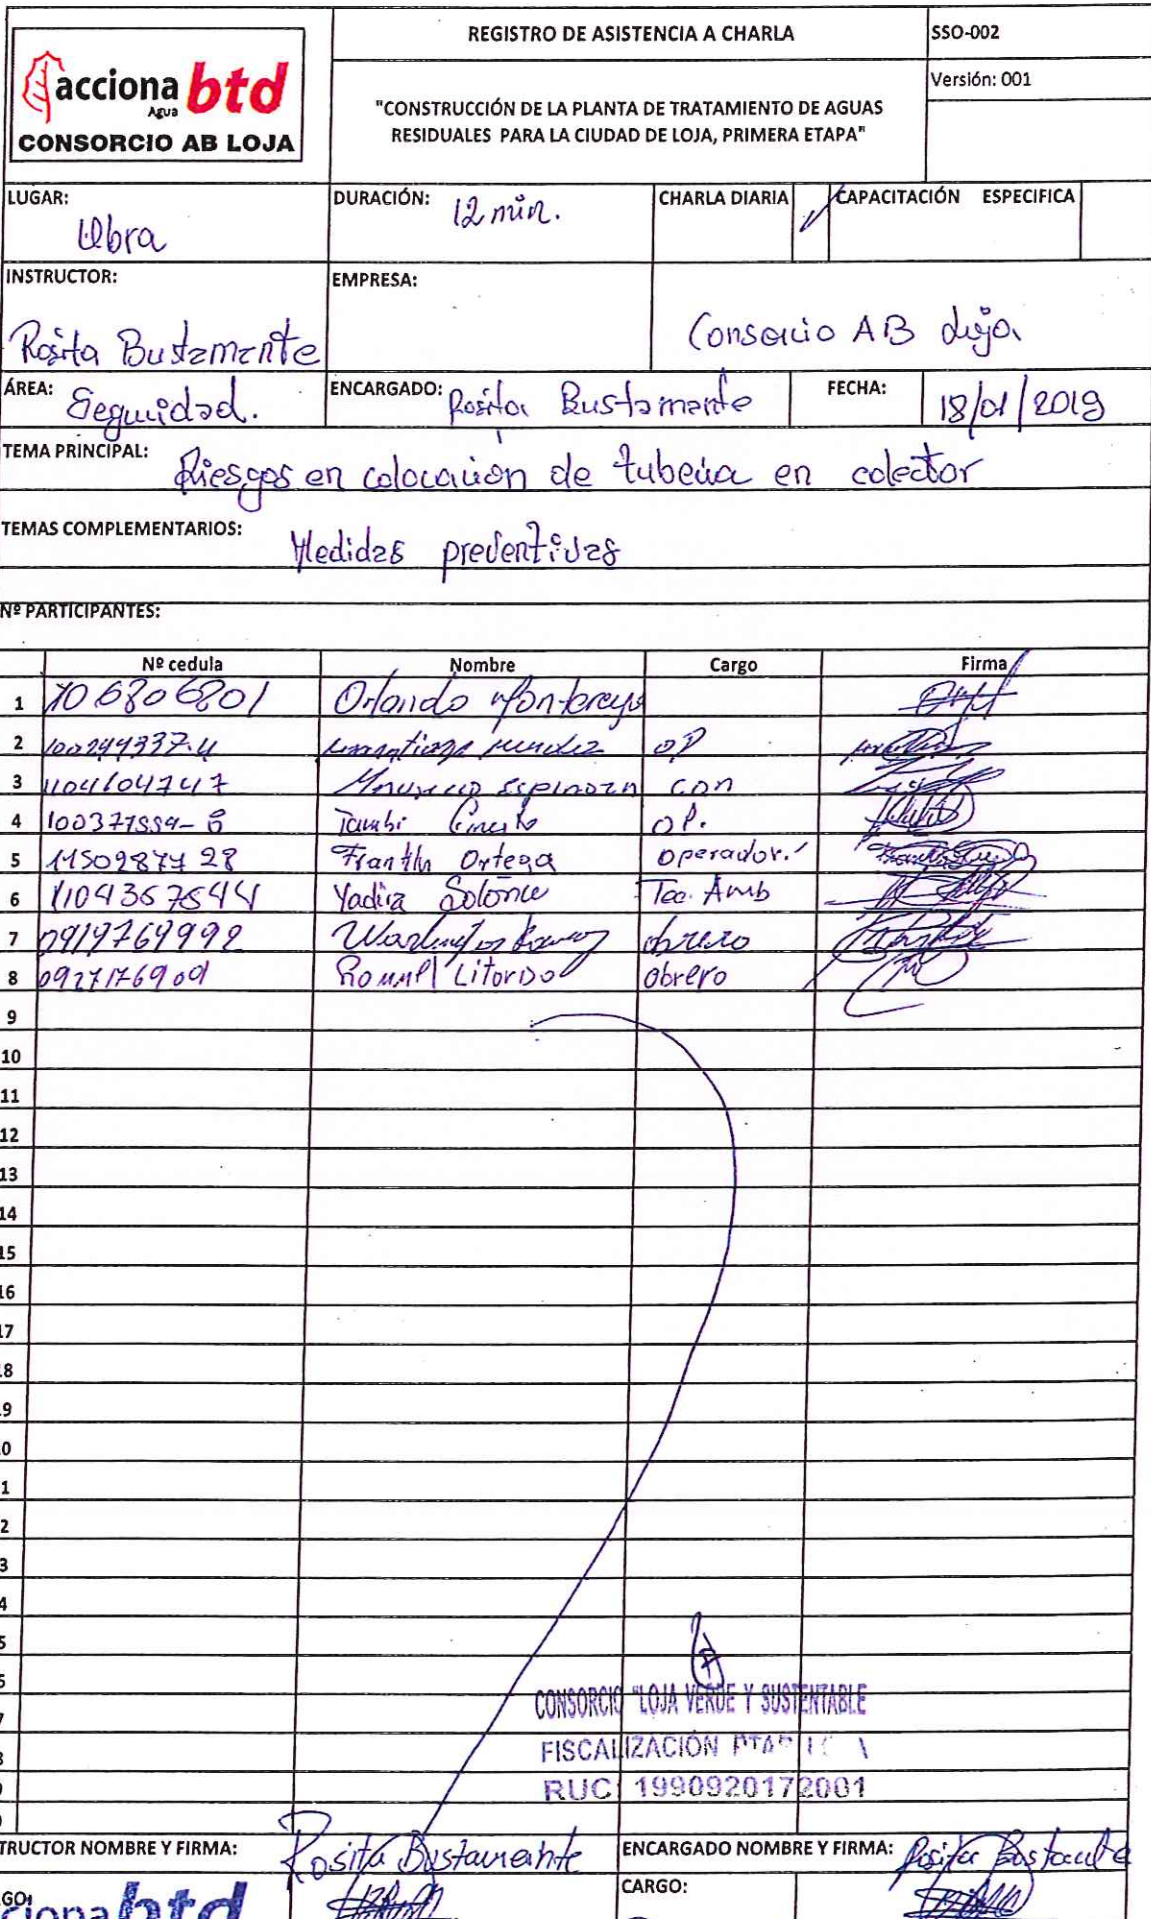 REGISTRO DE ASISTENCIA A CHARLA
SSO-002
acciona btd
Agua
CONSORCIO AB LOJA
Versión: 001
"CONSTRUCCIÓN DE LA PLANTA DE TRATAMIENTO DE AGUAS
RESIDUALES PARA LA CIUDAD DE LOJA, PRIMERA ETAPA"
LUGAR: Obra
DURACIÓN: 12 min.
CHARLA DIARIA
CAPACITACIÓN ESPECIFICA
INSTRUCTOR: Rosita Bustamante
EMPRESA: Consorcio AB Loja
ÁREA: Seguridad.
ENCARGADO: Rosita Bustamante
FECHA: 18/01/2019
TEMA PRINCIPAL: Riesgos en colocación de tubería en colector
TEMAS COMPLEMENTARIOS: Medidas preventivas
Nº PARTICIPANTES:
Nº cedula Nombre Cargo Firma
1 Orlando
2 OP
3 1104104747 Espinoza con
4 OP.
5 1150287728 Ortega Operador.
6 1104357544 Yadira Tec. Amb
7 0919769992 obrero
8 Rommel Litardo Obrero
9
10
11
12
13
14
15
16
17
18
19
20
21
22
23
24
25
26
27
28
29
30
CONSORCIO "LOJA VERDE Y SUSTENTABLE
FISCALIZACIÓN PTAR
RUC 1990920172001
TRUCTOR NOMBRE Y FIRMA: Rosita Bustamante
ENCARGADO NOMBRE Y FIRMA: Rosita Bustamante
GO:
CARGO:
ciona btd